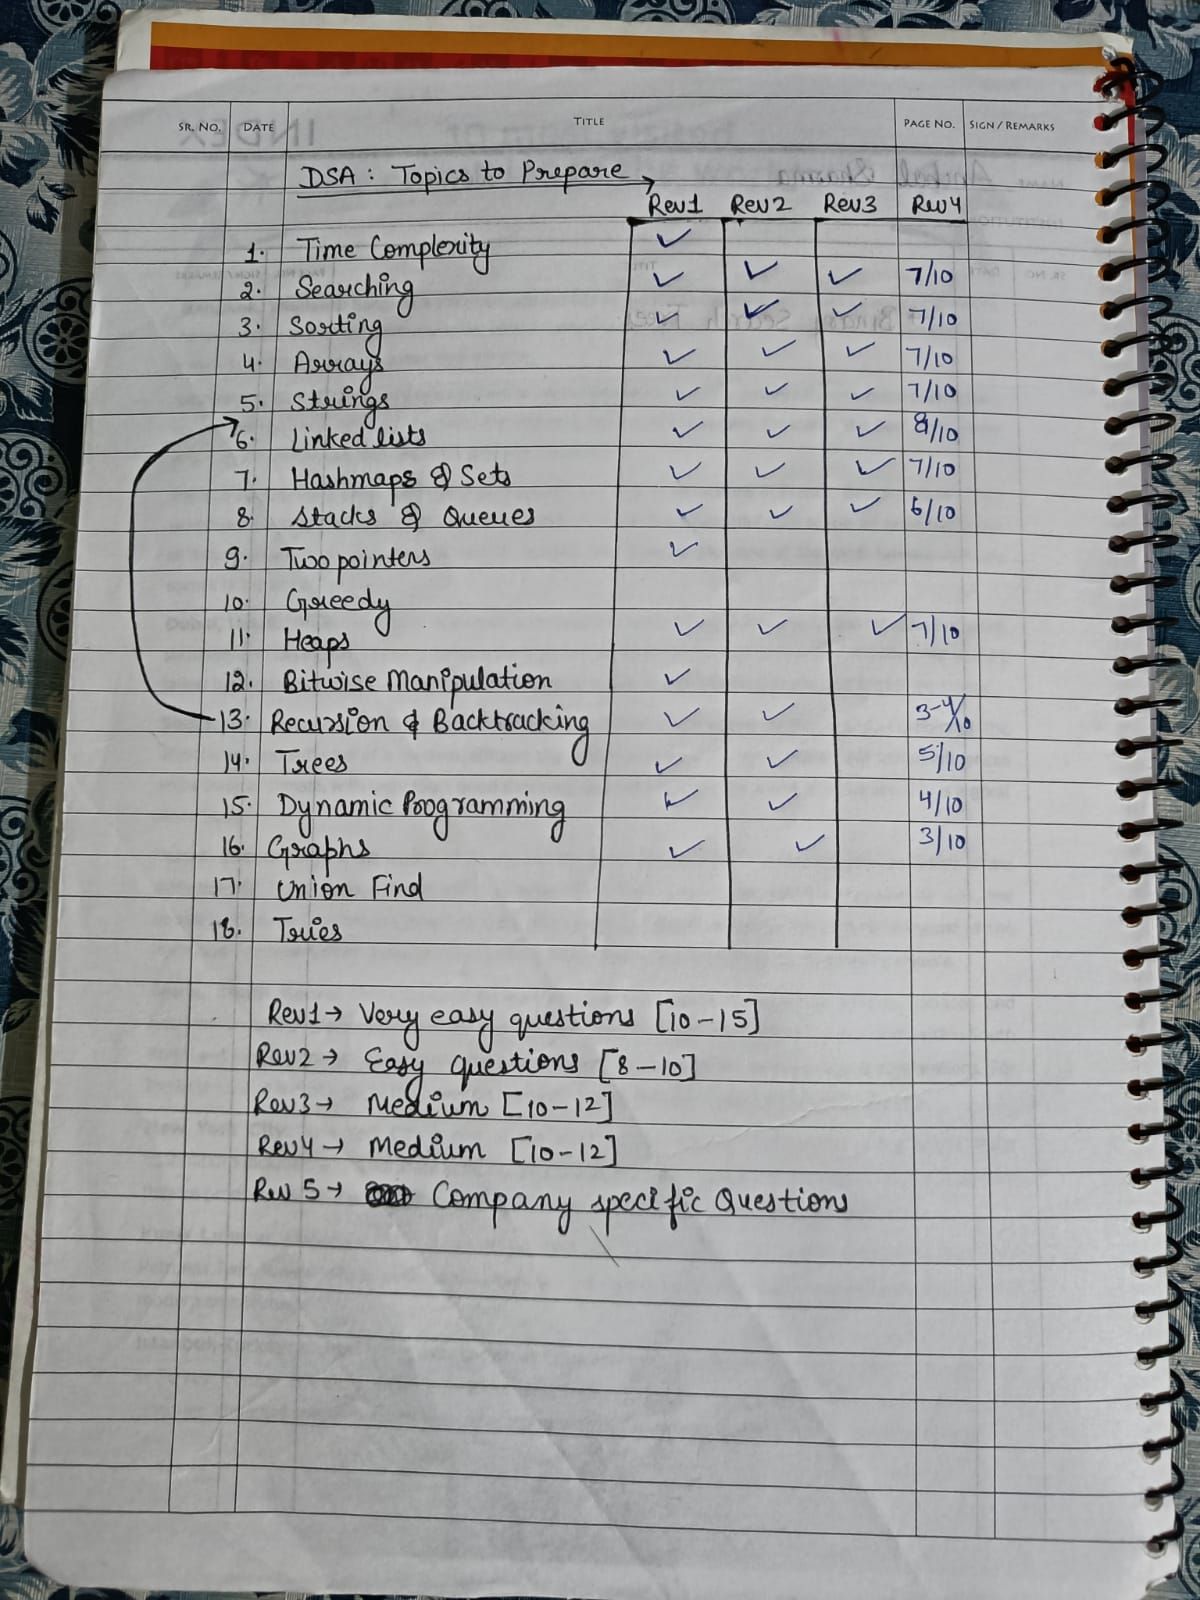 SR. NO. DATE TITLE PAGE NO. SIGN / REMARKS
DSA : Topics to Prepare →
Rev1 Rev2 Rev3 Rev4
1. Time Complexity ✓
2. Searching ✓ ✓ ✓ 7/10
3. Sorting ✓ ✓ ✓ 7/10
4. Arrays ✓ ✓ ✓ 7/10
5. Strings ✓ ✓ ✓ 7/10
6. Linked lists ✓ ✓ ✓ 8/10
7. Hashmaps & Sets ✓ ✓ ✓ 7/10
8. Stacks & Queues ✓ ✓ ✓ 6/10
9. Two pointers ✓
10. Greedy
11. Heaps ✓ ✓ ✓ 7/10
12. Bitwise Manipulation ✓
13. Recursion & Backtracking ✓ ✓ 3-4/10
14. Trees ✓ ✓ 5/10
15. Dynamic Programming ✓ ✓ 4/10
16. Graphs ✓ ✓ 3/10
17. Union Find
18. Tries
Rev1 → Very easy questions [10-15]
Rev2 → Easy questions [8-10]
Rev3 → Medium [10-12]
Rev4 → Medium [10-12]
Rev 5 → Company specific Questions